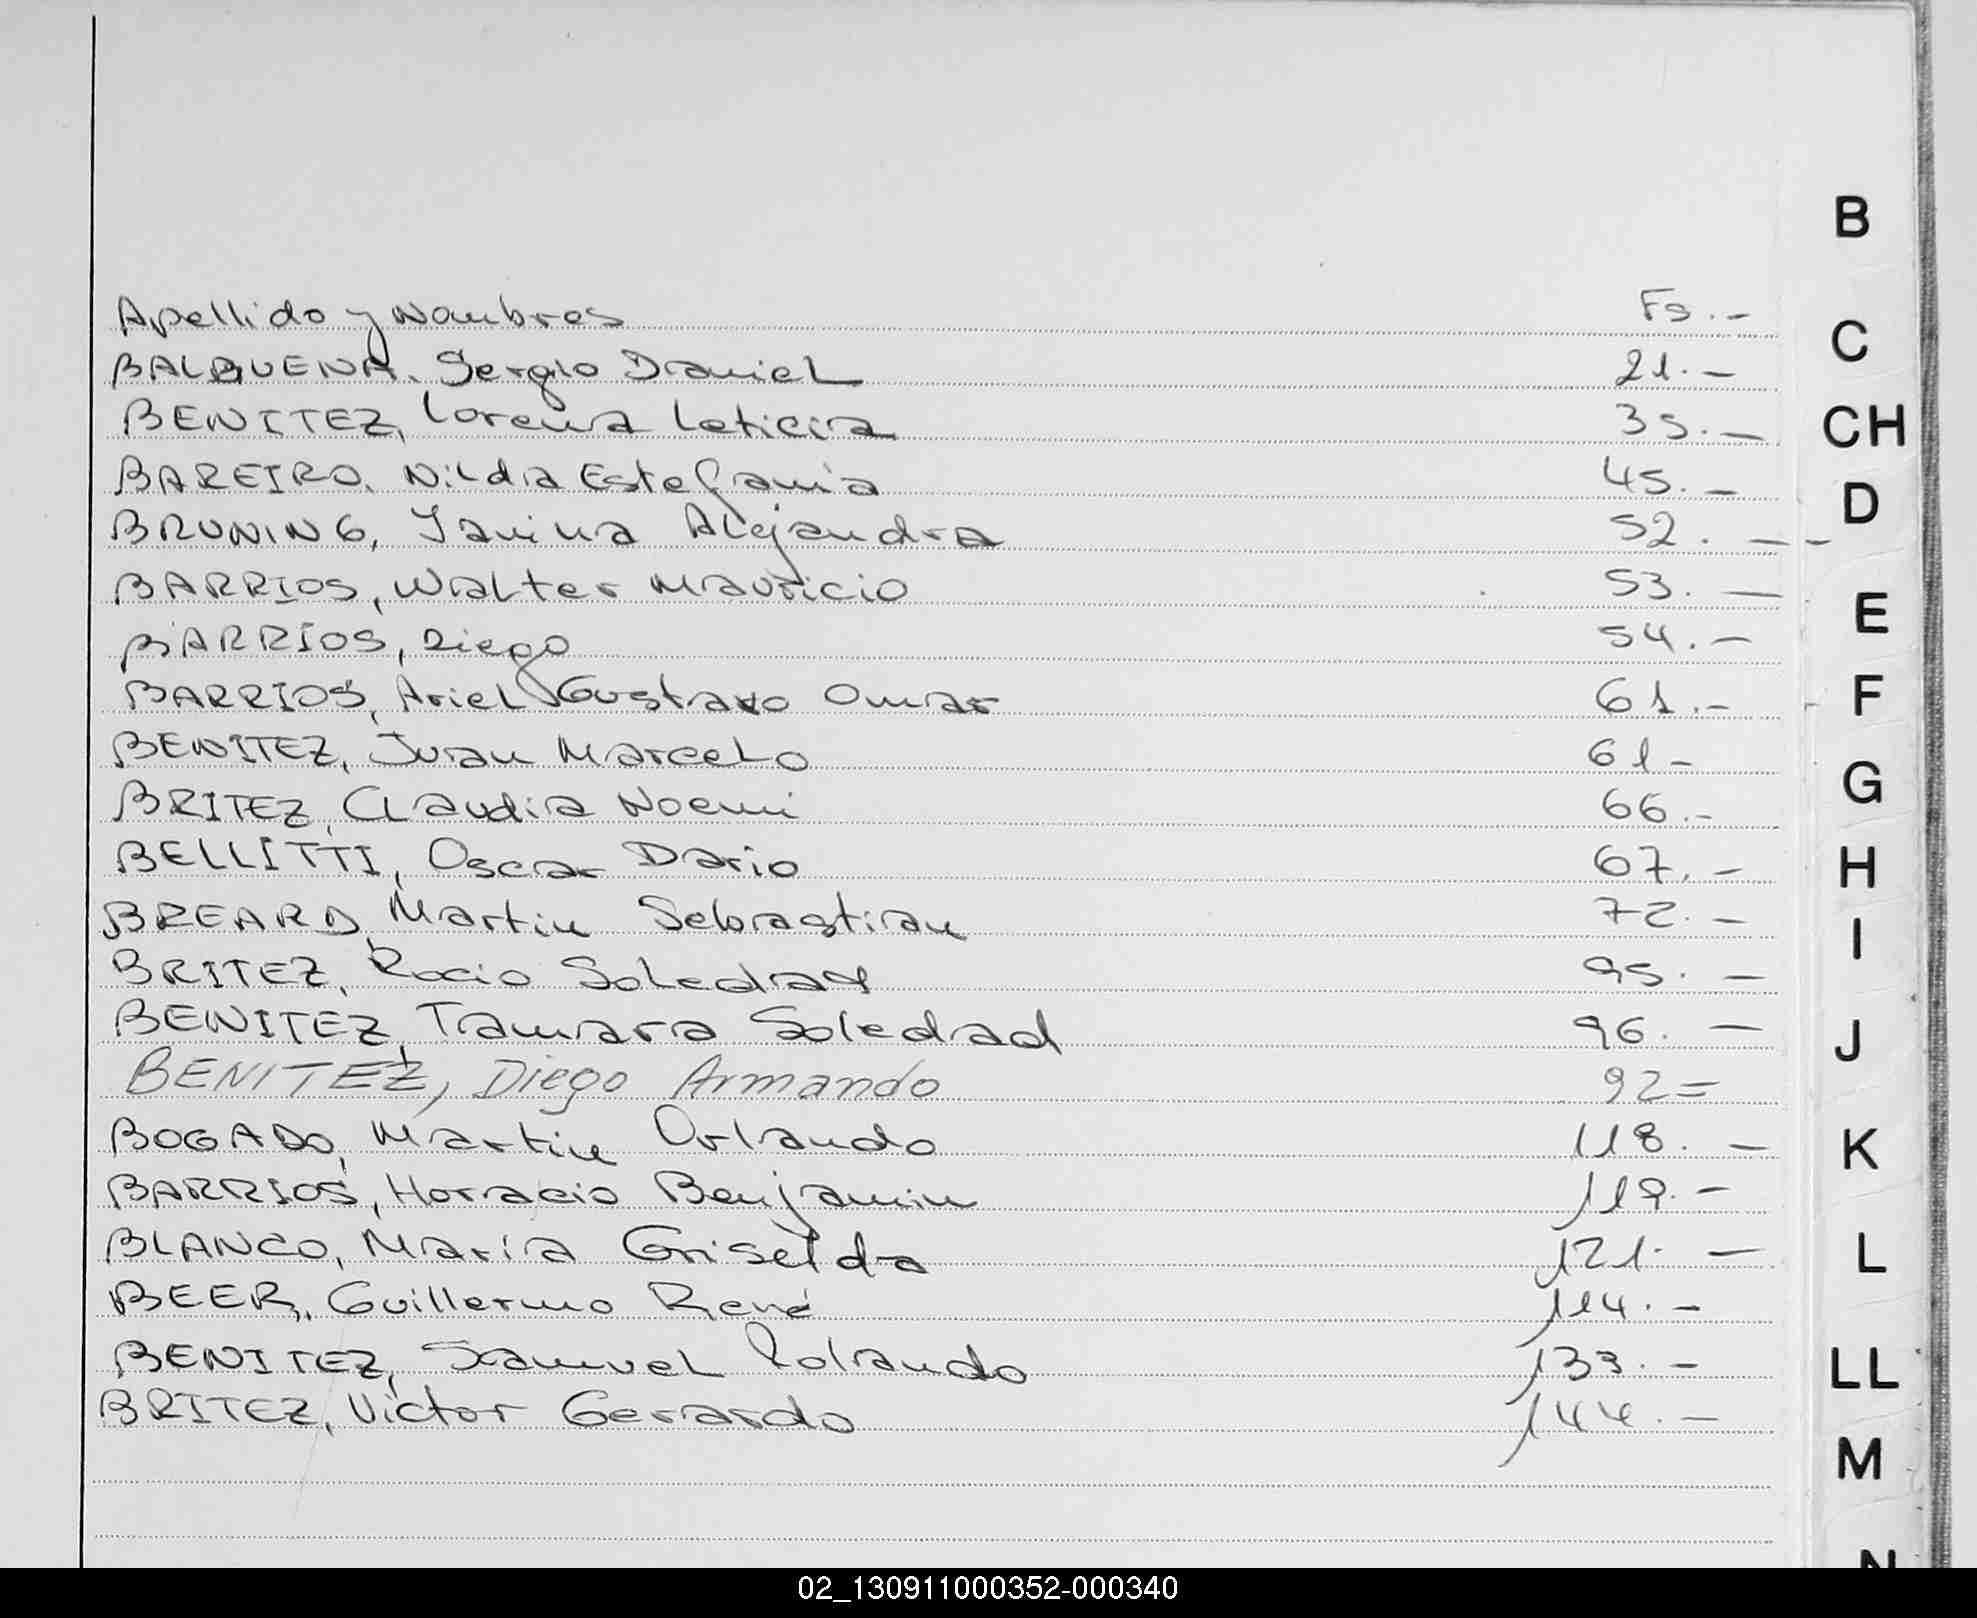 B
C
CH
D
E
F
G
H
I
J
K
L
LL
M
N
Apellido y Nombres Fs.-
BALBUENA. Sergio Daniel 21.-
BENITEZ, Lorena Leticia 35.-
BAREIRO. Nilda Estefania 45.-
BRUNING, Yanina Alejandra 52. --
BARRIOS, Walter Mauricio 53.-
BARRIOS, Diego 54.-
BARRIOS, Ariel Gustavo Omar 61.-
BENITEZ, Juan Marcelo 61-
BRITEZ, Claudia Noemi 66.-
BELLITTI, Oscar Dario 67.-
BREARD, Martin Sebastian 72.-
BRITEZ, Rocio Soledad 95.-
BENITEZ, Tamara Soledad 96.-
BENITEZ, Diego Armando 92=
BOGADO, Martin Orlando 118.-
BARRIOS, Horacio Benjamin 119.-
BLANCO, María Griselda 121.-
BEER, Guillermo René 114.-
BENITEZ, Samuel Rolando 133.-
BRITEZ, Victor Gerardo 144.-
02_130911000352-000340